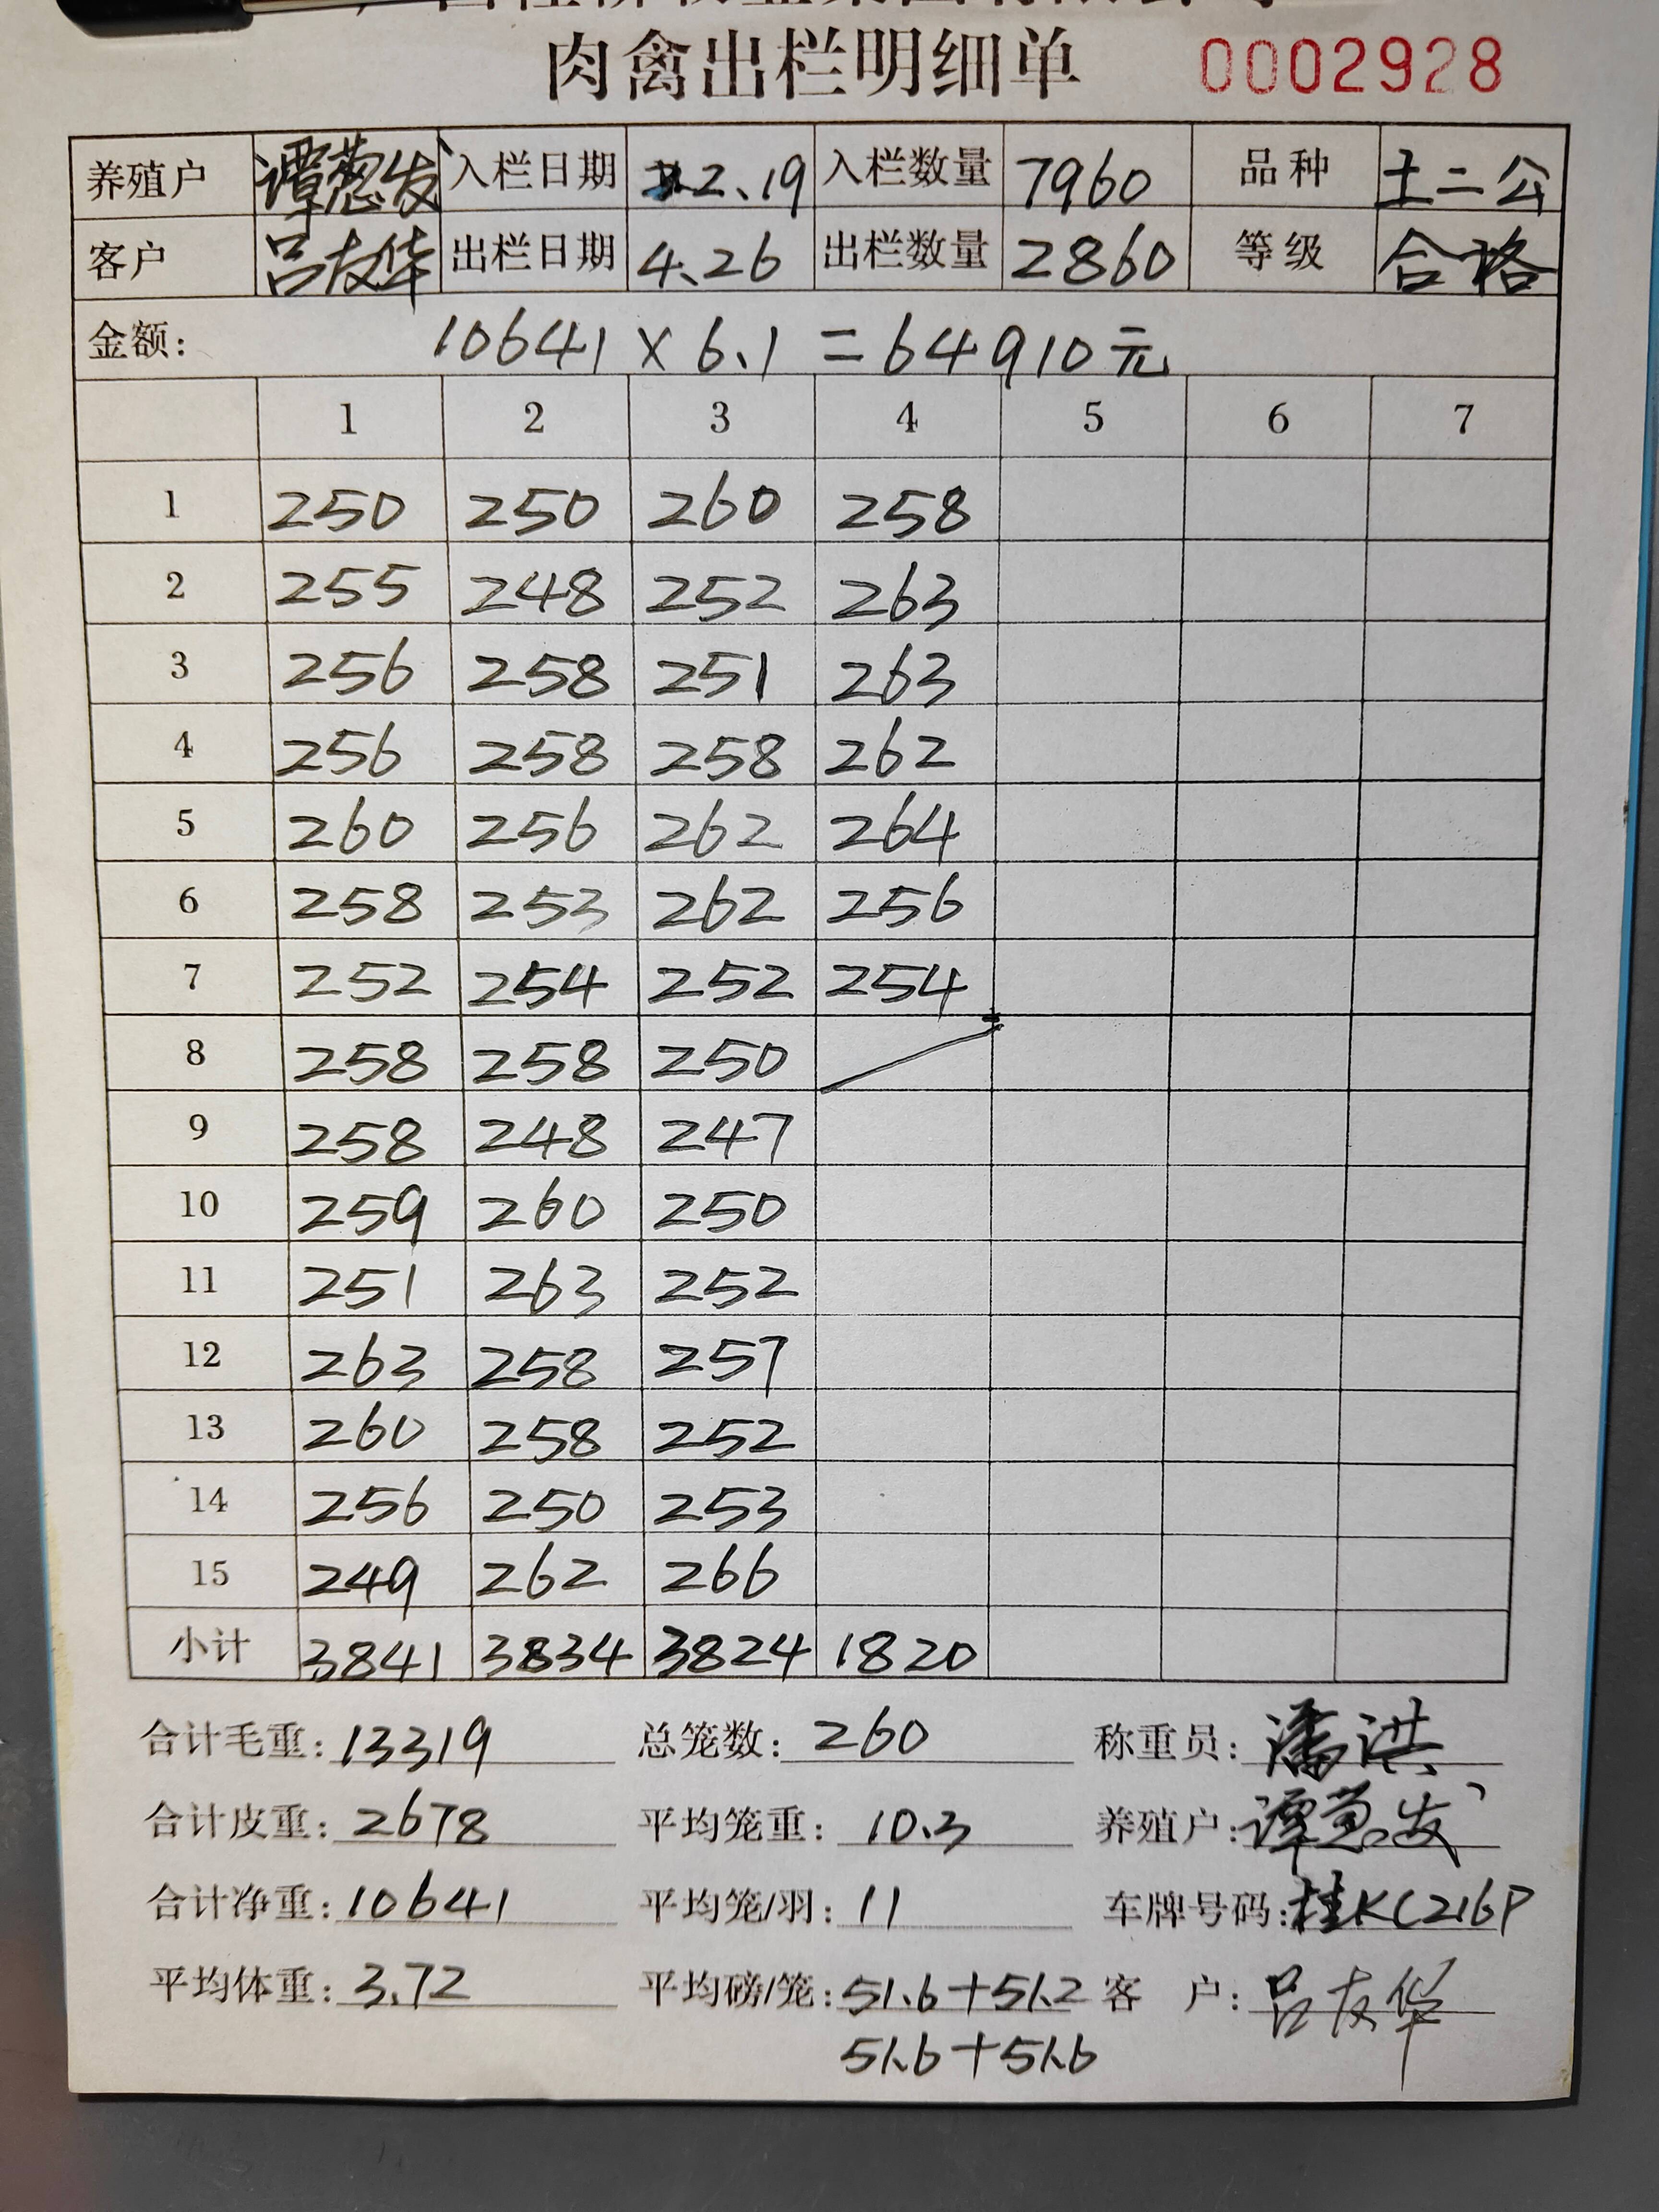 肉禽出栏明细单 0002928
养殖户 谭葱发 入栏日期 2.19 入栏数量 7960 品种 土二公
客户 吕友华 出栏日期 4.26 出栏数量 2860 等级 合格
金额: 10641×6.1=64910元
1 2 3 4 5 6 7
1 250 250 260 258
2 255 248 252 263
3 256 258 251 263
4 256 258 258 262
5 260 256 262 264
6 258 253 262 256
7 252 254 252 254
8 258 258 250
9 258 248 247
10 259 260 250
11 251 263 252
12 263 258 257
13 260 258 252
14 256 250 253
15 249 262 266
小计 3841 3834 3824 1820
合计毛重: 13319 总笼数: 260 称重员: 潘洪
合计皮重: 2678 平均笼重: 10.3 养殖户: 谭葱发
合计净重: 10641 平均笼/羽: 11 车牌号码: 桂KC216P
平均体重: 3.72 平均磅/笼: 51.6+51.2 客 户: 吕友华
51.6+51.6